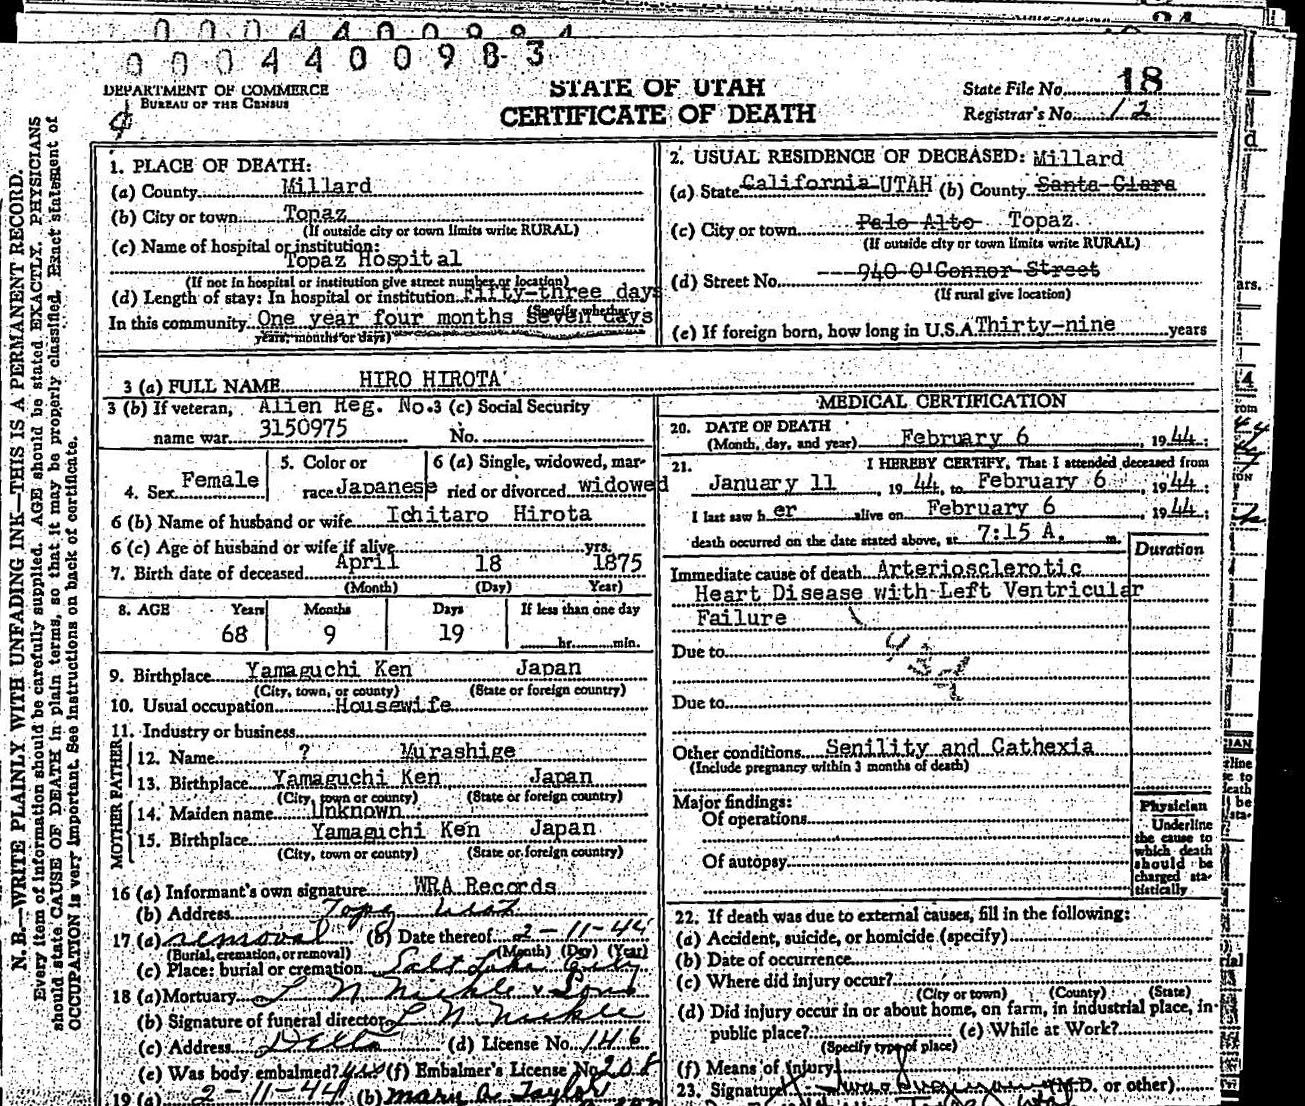 0 0 0 4 4 0 0 9 8 4
0 0 0 4 4 0 0 9 8 3
DEPARTMENT OF COMMERCE
BUREAU OF THE CENSUS
STATE OF UTAH
CERTIFICATE OF DEATH
State File No. 18
Registrar's No. 12
N. B.—WRITE PLAINLY WITH UNFADING INK—THIS IS A PERMANENT RECORD.
Every item of information should be carefully supplied. AGE should be stated EXACTLY. PHYSICIANS
should state CAUSE OF DEATH in plain terms, so that it may be properly classified. Exact statement of
OCCUPATION is very important. See instructions on back of certificate.
1. PLACE OF DEATH:
(a) County Millard
(b) City or town Topaz
(If outside city or town limits write RURAL)
(c) Name of hospital or institution:
Topaz Hospital
(If not in hospital or institution give street number or location)
(d) Length of stay: In hospital or institution Fifty-three days
(Specify whether
In this community One year four months seven days
years, months or days)
2. USUAL RESIDENCE OF DECEASED: Millard
(a) State California UTAH (b) County Santa Clara
(c) City or town Palo Alto Topaz
(If outside city or town limits write RURAL)
(d) Street No. 940 O'Connor Street
(If rural give location)
(e) If foreign born, how long in U.S.A Thirty-nine years
3 (a) FULL NAME HIRO HIROTA
3 (b) If veteran, Alien Reg. No. 3 (c) Social Security
name war 3150975 No.
4. Sex Female
5. Color or
race Japanese
6 (a) Single, widowed, mar-
ried or divorced widowed
6 (b) Name of husband or wife Ichitaro Hirota
6 (c) Age of husband or wife if alive yrs.
7. Birth date of deceased April 18 1875
(Month) (Day) Year)
8. AGE Years Months Days If less than one day
68 9 19 hr. min.
9. Birthplace Yamaguchi Ken Japan
(City, town, or county) (State or foreign country)
10. Usual occupation Housewife
11. Industry or business
FATHER
12. Name ? Murashige
13. Birthplace Yamaguchi Ken Japan
(City, town or county) (State or foreign country)
MOTHER
14. Maiden name Unknown
15. Birthplace Yamaguchi Ken Japan
(City, town or county) (State or foreign country)
16 (a) Informant's own signature WRA Records
(b) Address Topaz Utah
17 (a) removal (b) Date thereof 2-11-44
(Burial, cremation, or removal) (Month) (Day) (Year)
(c) Place: burial or cremation Salt Lake City
18 (a) Mortuary L N Nickle & Sons
(b) Signature of funeral director L. N. Nickle
(c) Address Delta (d) License No. 146
(e) Was body embalmed? yes (f) Embalmer's License No. 208
19 (a) 2-11-44 (b) Mary A. Taylor
MEDICAL CERTIFICATION
20. DATE OF DEATH
(Month, day, and year) February 6, 1944;
21. I HEREBY CERTIFY, That I attended deceased from
January 11, 1944, to February 6, 1944;
I last saw her alive on February 6, 1944;
death occurred on the date stated above, at 7:15 A. m.
Duration
Immediate cause of death Arteriosclerotic
Heart Disease with Left Ventricular
Failure
Due to
Due to
Other conditions Senility and Cathexia
(Include pregnancy within 3 months of death)
Major findings:
Of operations
Of autopsy
Physician
Underline
the cause to
which death
should be
charged sta-
tistically
22. If death was due to external causes, fill in the following:
(a) Accident, suicide, or homicide (specify)
(b) Date of occurrence
(c) Where did injury occur?
(City or town) (County) (State)
(d) Did injury occur in or about home, on farm, in industrial place, in
public place? (e) While at Work?
(Specify type of place)
(f) Means of Injury
23. Signature (M.D. or other)